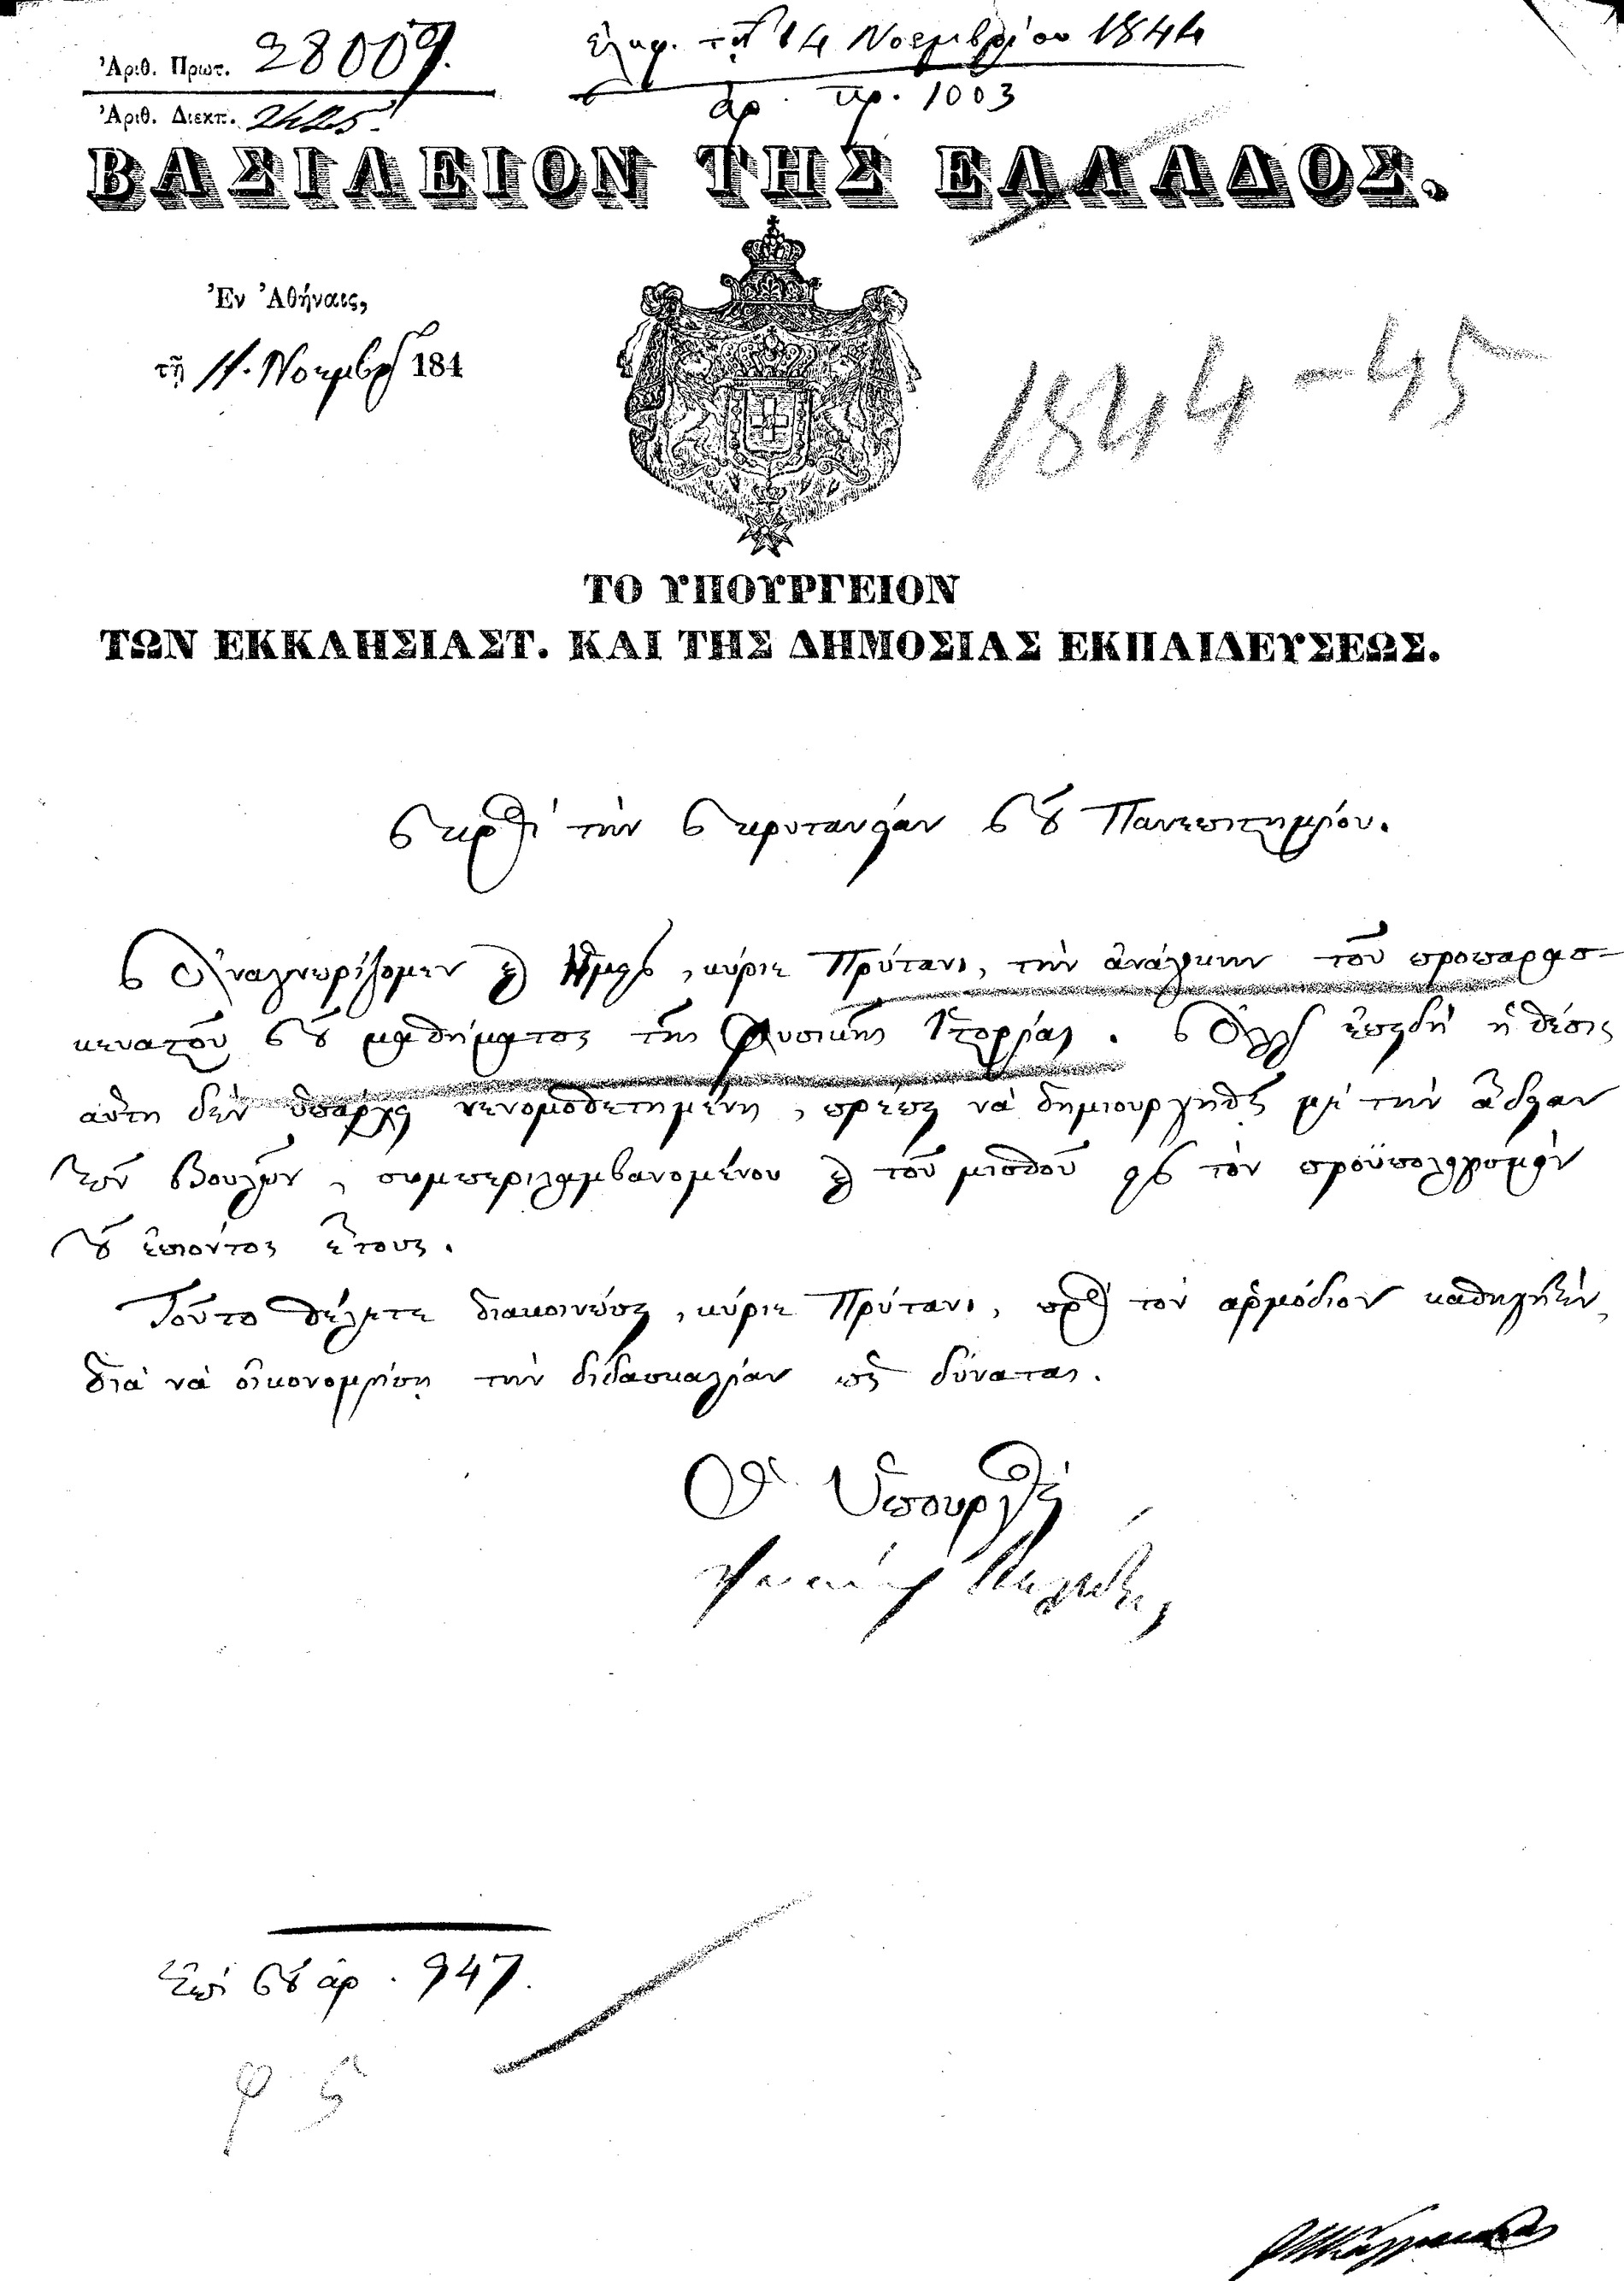 Ἀριθ. Πρωτ. 28009.
Ἀριθ. Διεκπ. 2425.
ἐλήφ. τῇ 14 Νοεμβρίου 1844
ἀρ. πρ. 1003
ΒΑΣΙΛΕΙΟΝ ΤΗΣ ΕΛΛΑΔΟΣ.
Ἐν Ἀθήναις,
τῇ 11. Νοεμβρ 184
1844-45
ΤΟ ΥΠΟΥΡΓΕΙΟΝ
ΤΩΝ ΕΚΚΛΗΣΙΑΣΤ. ΚΑΙ ΤΗΣ ΔΗΜΟΣΙΑΣ ΕΚΠΑΙΔΕΥΣΕΩΣ.
πρὸς τὴν πρυτανείαν τοῦ Πανεπιστημίου.
Ἀναγνωρίζομεν καὶ Ἡμεῖς, κύριε Πρύτανι, τὴν ἀνάγκην τοῦ προπαρασ-
κευαστοῦ τοῦ μαθήματος τῆς Φυσικῆς Ἱστορίας. Ἀλλ' ἐπειδὴ ἡ θέσις
αὕτη δὲν ὑπάρχει νενομοθετημένη, πρέπει νὰ δημιουργηθῇ μὲ τὴν ἄδειαν
τῶν Βουλῶν, συμπεριλαμβανομένου καὶ τοῦ μισθοῦ εἰς τὸν προϋπολογισμὸν
τοῦ ἐπιόντος ἔτους.
Τοῦτο θέλετε διακοινώσει, κύριε Πρύτανι, πρὸς τὸν ἁρμόδιον καθηγητὴν,
διὰ νὰ οἰκονομήσῃ τὴν διδασκαλίαν ὡς δύναται.
Ὁ Ὑπουργὸς
Ἐπὶ τοῦ ἀρ. 947.
φ 5